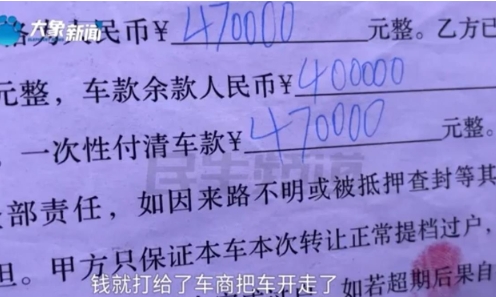 大象新闻
格为人民币¥ 470000 元整。乙方已
元整，车款余款人民币¥ 400000
，一次性付清车款¥ 470000 元整。
部责任，如因来路不明或被抵押查封等其
担。甲方只保证本车本次转让正常提档过户，
钱就打给了车商把车开走了
如若超期后果自